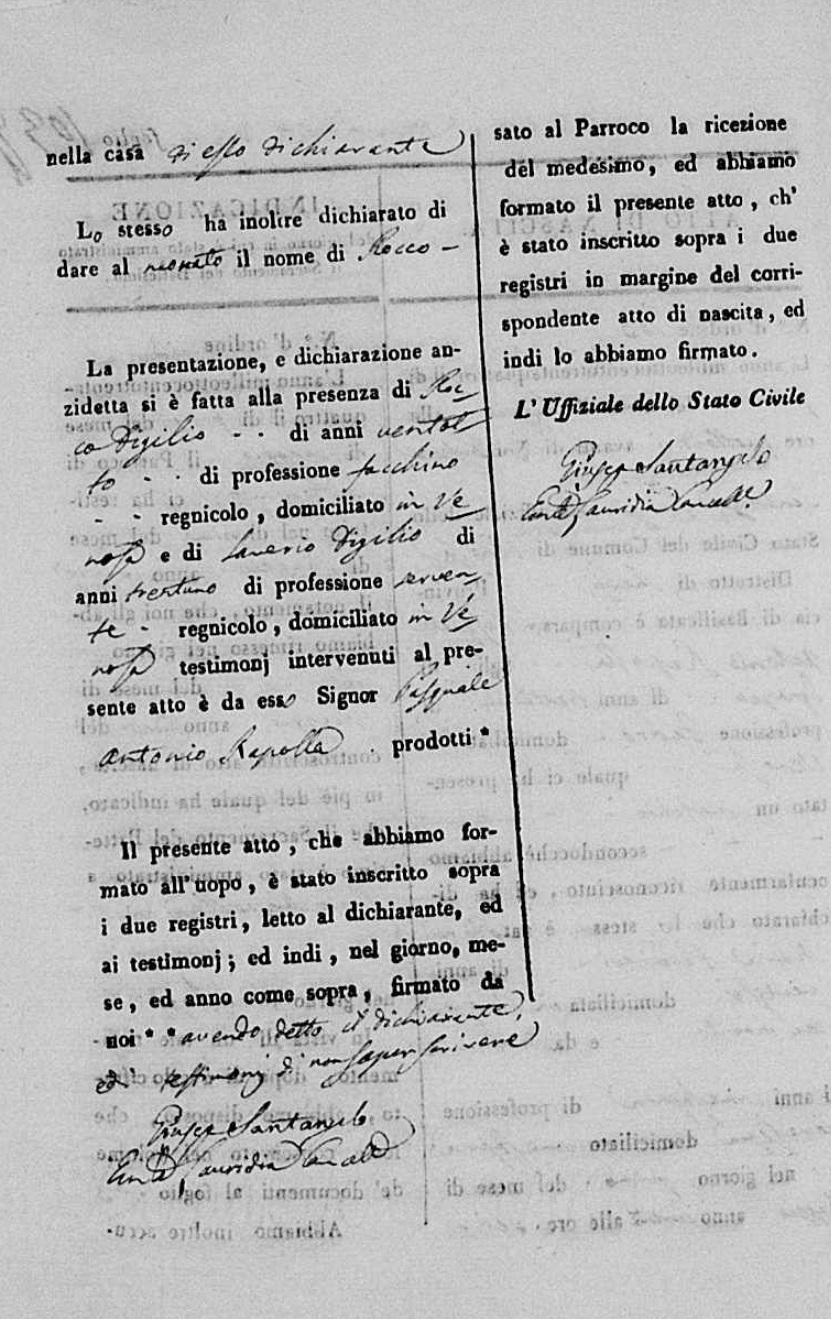 nella casa di esso dichiarante
Lo stesso ha inoltre dichiarato di
dare al neonato il nome di Rocco -
La presentazione, e dichiarazione an-
zidetta si è fatta alla presenza di Roc-
co Digilio - - di anni ventot
to - - di professione facchino
- - regnicolo, domiciliato in Ve
nosa e di Saverio Digilio di
anni trentuno di professione serven
te - regnicolo, domiciliato in Ve
nosa testimonj intervenuti al pre-
sente atto è da esso Signor Pasquale
Antonio Rapolla . prodotti *
Il presente atto, che abbiamo for-
mato all'uopo, è stato inscritto sopra
i due registri, letto al dichiarante, ed
ai testimonj; ed indi, nel giorno, me-
se, ed anno come sopra, firmato da
noi * * avendo detto il dichiarante,
ed i testimonj di non saper scrivere
Santangelo
sato al Parroco la ricezione
del medesimo, ed abbiamo
formato il presente atto, ch'
è stato inscritto sopra i due
registri in margine del corri-
spondente atto di nascita, ed
indi lo abbiamo firmato.
L'Uffiziale dello Stato Civile
Santangelo